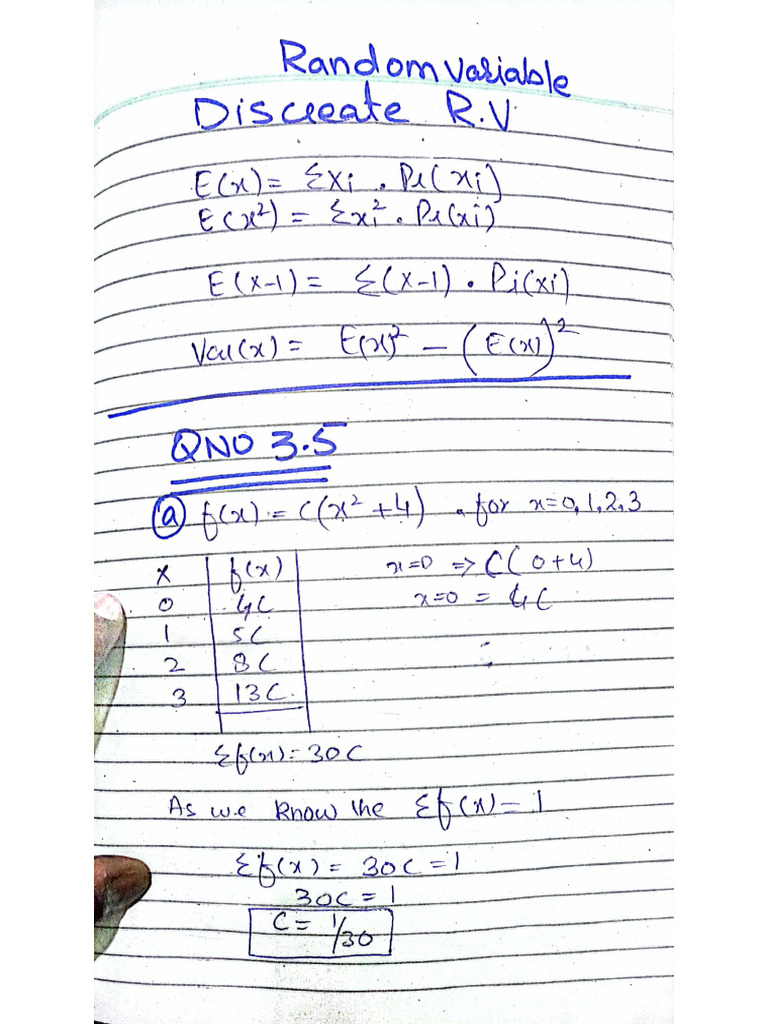 Random variable
Discreate R.V
E(x) = Σxi . Pr(xi)
E(x²) = Σxi² . Pr(xi)
E(x-1) = Σ(x-1) . Pi(xi)
Var(x) = E(x)² - (E(x))²
QNO 3.5
(a) f(x) = C(x²+4) , for x=0,1,2,3
x f(x) x=0 => C(0+4)
0 4C x=0 = 4C
1 5C
2 8C
3 13C
Σf(x) = 30C
As we know the Σf(x) = 1
Σf(x) = 30C = 1
30C = 1
C = 1/30